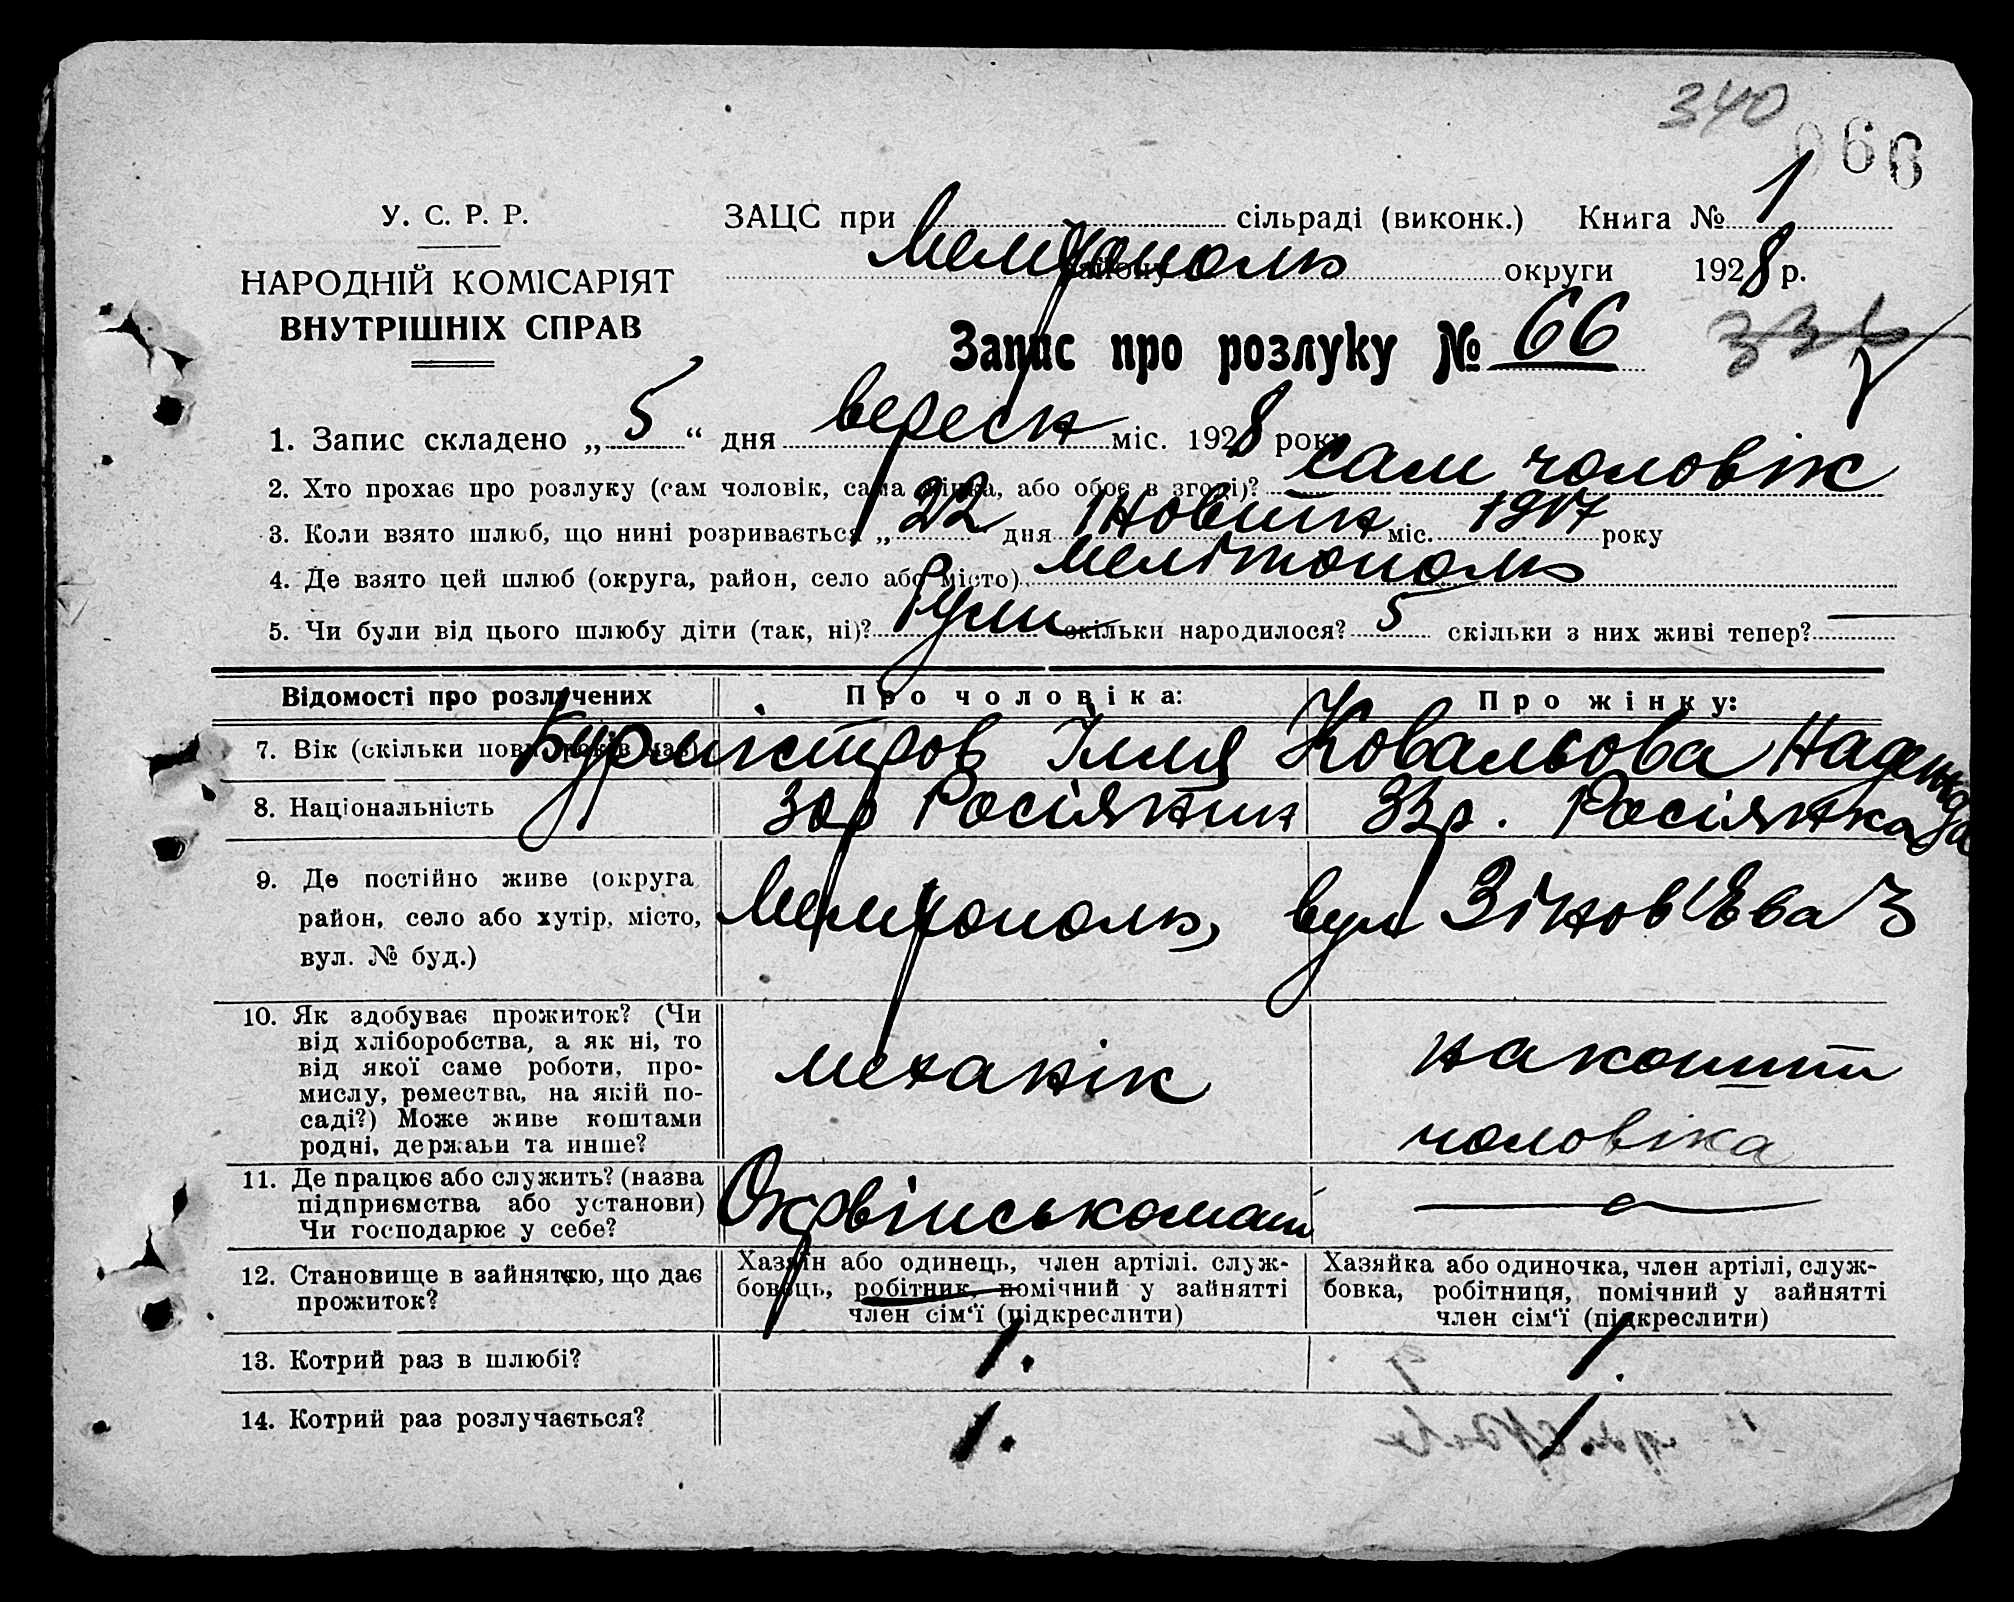 340
066
У. С. Р. Р.
ЗАЦС при сільраді (виконк.) Книга № 1
Мелітополь району округи 1928 р.
НАРОДНІЙ КОМІСАРІЯТ
ВНУТРІШНІХ СПРАВ
Запис про розлуку № 66
1. Запис складено „5“ дня вересн міс. 1928 року
2. Хто прохає про розлуку (сам чоловік, сама жінка, або обоє в згоді)? сам чоловік
3. Коли взято шлюб, що нині розривається „22 дня міс. 1917 року
4. Де взято цей шлюб (округа, район, село або місто) Мелітополь
5. Чи були від цього шлюбу діти (так, ні)? скільки народилося? 5 скільки з них живі тепер? —
Відомості про розлучених Про чоловіка: Про жінку:
Бурмістров Ілля Ковальова Надежда
7. Вік (скільки повн. років має)
8. Національність Росіянин 33 р. Росіянка
9. Де постійно живе (округа район, село або хутір, місто, вул. № буд.)
Мелітополь, вул Зінов'Єва 3
10. Як здобуває прожиток? (Чи
від хліборобства, а як ні, то
від якої саме роботи, про-
мислу, ремества, на якій по-
саді?) Може живе коштами
родні, держави та инше?
механік
на кошти
чоловіка
11. Де працює або служить? (назва
підприємства або установи)
Чи господарює у себе?
—
12. Становище в зайняттю, що дає
прожиток?
Хазяїн або одинець, член артілі. служ-
бовець, робітник, помічний у зайнятті
член сім'ї (підкреслити)
Хазяйка або одиночка, член артілі, служ-
бовка, робітниця, помічний у зайнятті
член сім'ї (підкреслити)
13. Котрий раз в шлюбі? 1. 1.
14. Котрий раз розлучається? 1. 1.